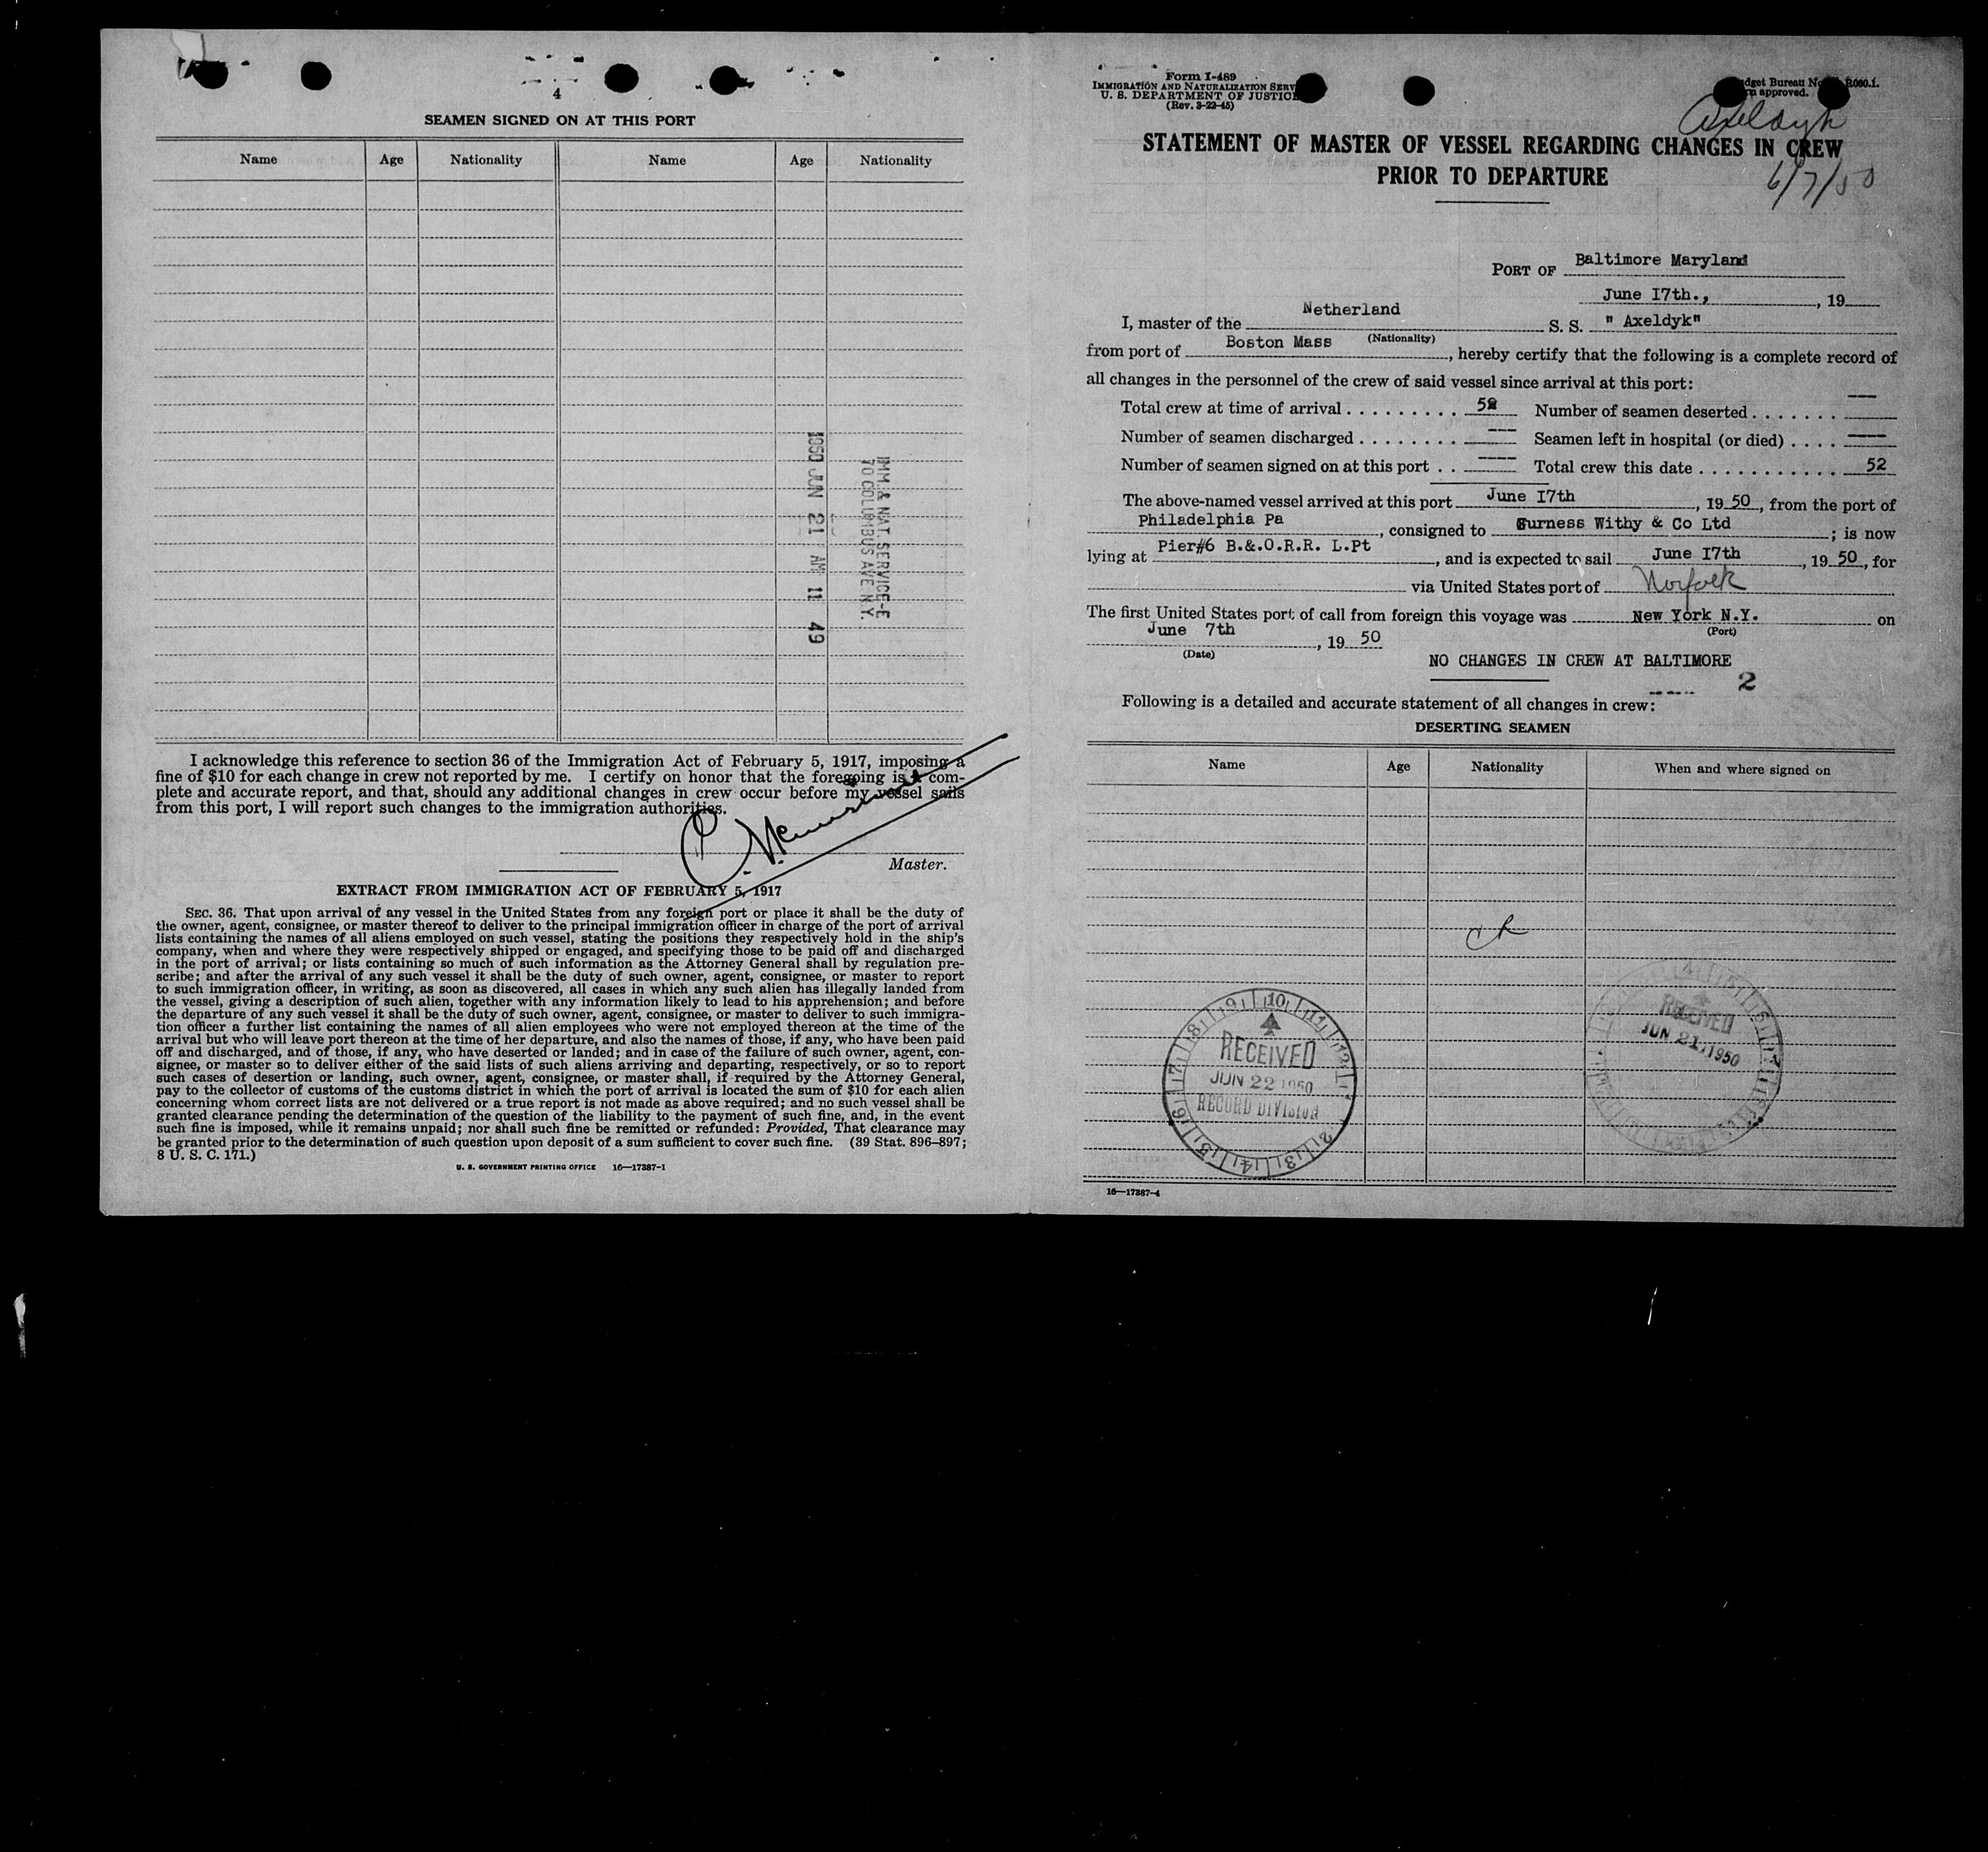 4
SEAMEN SIGNED ON AT THIS PORT
Name Age Nationality Name Age Nationality
1950 JUN 21 AM 11 49
IMM. & NAT. SERVICE-E
70 COLUMBUS AVE N.Y.
I acknowledge this reference to section 36 of the Immigration Act of February 5, 1917, imposing a
fine of $10 for each change in crew not reported by me. I certify on honor that the foregoing is a com-
plete and accurate report, and that, should any additional changes in crew occur before my vessel sails
from this port, I will report such changes to the immigration authorities.
Master.
EXTRACT FROM IMMIGRATION ACT OF FEBRUARY 5, 1917
SEC. 36. That upon arrival of any vessel in the United States from any foreign port or place it shall be the duty of
the owner, agent, consignee, or master thereof to deliver to the principal immigration officer in charge of the port of arrival
lists containing the names of all aliens employed on such vessel, stating the positions they respectively hold in the ship's
company, when and where they were respectively shipped or engaged, and specifying those to be paid off and discharged
in the port of arrival; or lists containing so much of such information as the Attorney General shall by regulation pre-
scribe; and after the arrival of any such vessel it shall be the duty of such owner, agent, consignee, or master to report
to such immigration officer, in writing, as soon as discovered, all cases in which any such alien has illegally landed from
the vessel, giving a description of such alien, together with any information likely to lead to his apprehension; and before
the departure of any such vessel it shall be the duty of such owner, agent, consignee, or master to deliver to such immigra-
tion officer a further list containing the names of all alien employees who were not employed thereon at the time of the
arrival but who will leave port thereon at the time of her departure, and also the names of those, if any, who have been paid
off and discharged, and of those, if any, who have deserted or landed; and in case of the failure of such owner, agent, con-
signee, or master so to deliver either of the said lists of such aliens arriving and departing, respectively, or so to report
such cases of desertion or landing, such owner, agent, consignee, or master shall, if required by the Attorney General,
pay to the collector of customs of the customs district in which the port of arrival is located the sum of $10 for each alien
concerning whom correct lists are not delivered or a true report is not made as above required; and no such vessel shall be
granted clearance pending the determination of the question of the liability to the payment of such fine, and, in the event
such fine is imposed, while it remains unpaid; nor shall such fine be remitted or refunded: Provided, That clearance may
be granted prior to the determination of such question upon deposit of a sum sufficient to cover such fine. (39 Stat. 896–897;
8 U. S. C. 171.)
U. S. GOVERNMENT PRINTING OFFICE 16—17387-1
Form I-489
IMMIGRATION AND NATURALIZATION SERV
U. S. DEPARTMENT OF JUSTICE
(Rev. 3-22-45)
dget Bureau No. R060.1.
approved.
Axeldyk
6/7/50
STATEMENT OF MASTER OF VESSEL REGARDING CHANGES IN CREW
PRIOR TO DEPARTURE
PORT OF Baltimore Maryland
June I7th., , 19
I, master of the Netherland S. S. " Axeldyk"
(Nationality)
from port of Boston Mass , hereby certify that the following is a complete record of
all changes in the personnel of the crew of said vessel since arrival at this port:
Total crew at time of arrival 52 Number of seamen deserted ---
Number of seamen discharged --- Seamen left in hospital (or died) ----
Number of seamen signed on at this port ---- Total crew this date 52
The above-named vessel arrived at this port June I7th , 19 50 , from the port of
Philadelphia Pa , consigned to Furness Withy & Co Ltd ; is now
lying at Pier#6 B.&.O.R.R. L.Pt , and is expected to sail June I7th , 19 50 , for
via United States port of Norfolk
The first United States port of call from foreign this voyage was New York N.Y. on
(Port)
June 7th , 19 50
(Date)
NO CHANGES IN CREW AT BALTIMORE
2
Following is a detailed and accurate statement of all changes in crew:
DESERTING SEAMEN
Name Age Nationality When and where signed on
RECEIVED
JUN 22 1950
RECORD DIVISION
RECEIVED
JUN 21 1950
16—17387-4